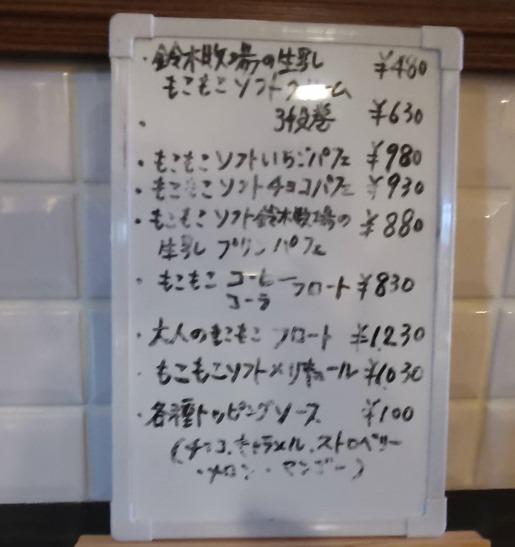 ・鈴木牧場の生乳 ¥480
もこもこソフトクリーム
・ 3段巻 ¥630
・もこもこソフトいちごパフェ ¥980
・もこもこソフトチョコパフェ ¥930
・もこもこソフト鈴木牧場の ¥880
生乳プリンパフェ
・もこもこ コーヒー フロート ¥830
コーラ
・大人のもこもこフロート ¥1,230
・もこもこソフトメリ ール ¥1,030
・各種トッピングソース ¥100
(チョコ、キャラメル、ストロベリー
・メロン・マンゴー)